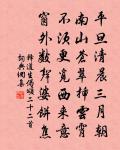 平旦清晨三月朝
南山苍翠插云霄
不须更觅西来意
窗外数声婆饼焦
释道生偈颂二十二首
词典网集